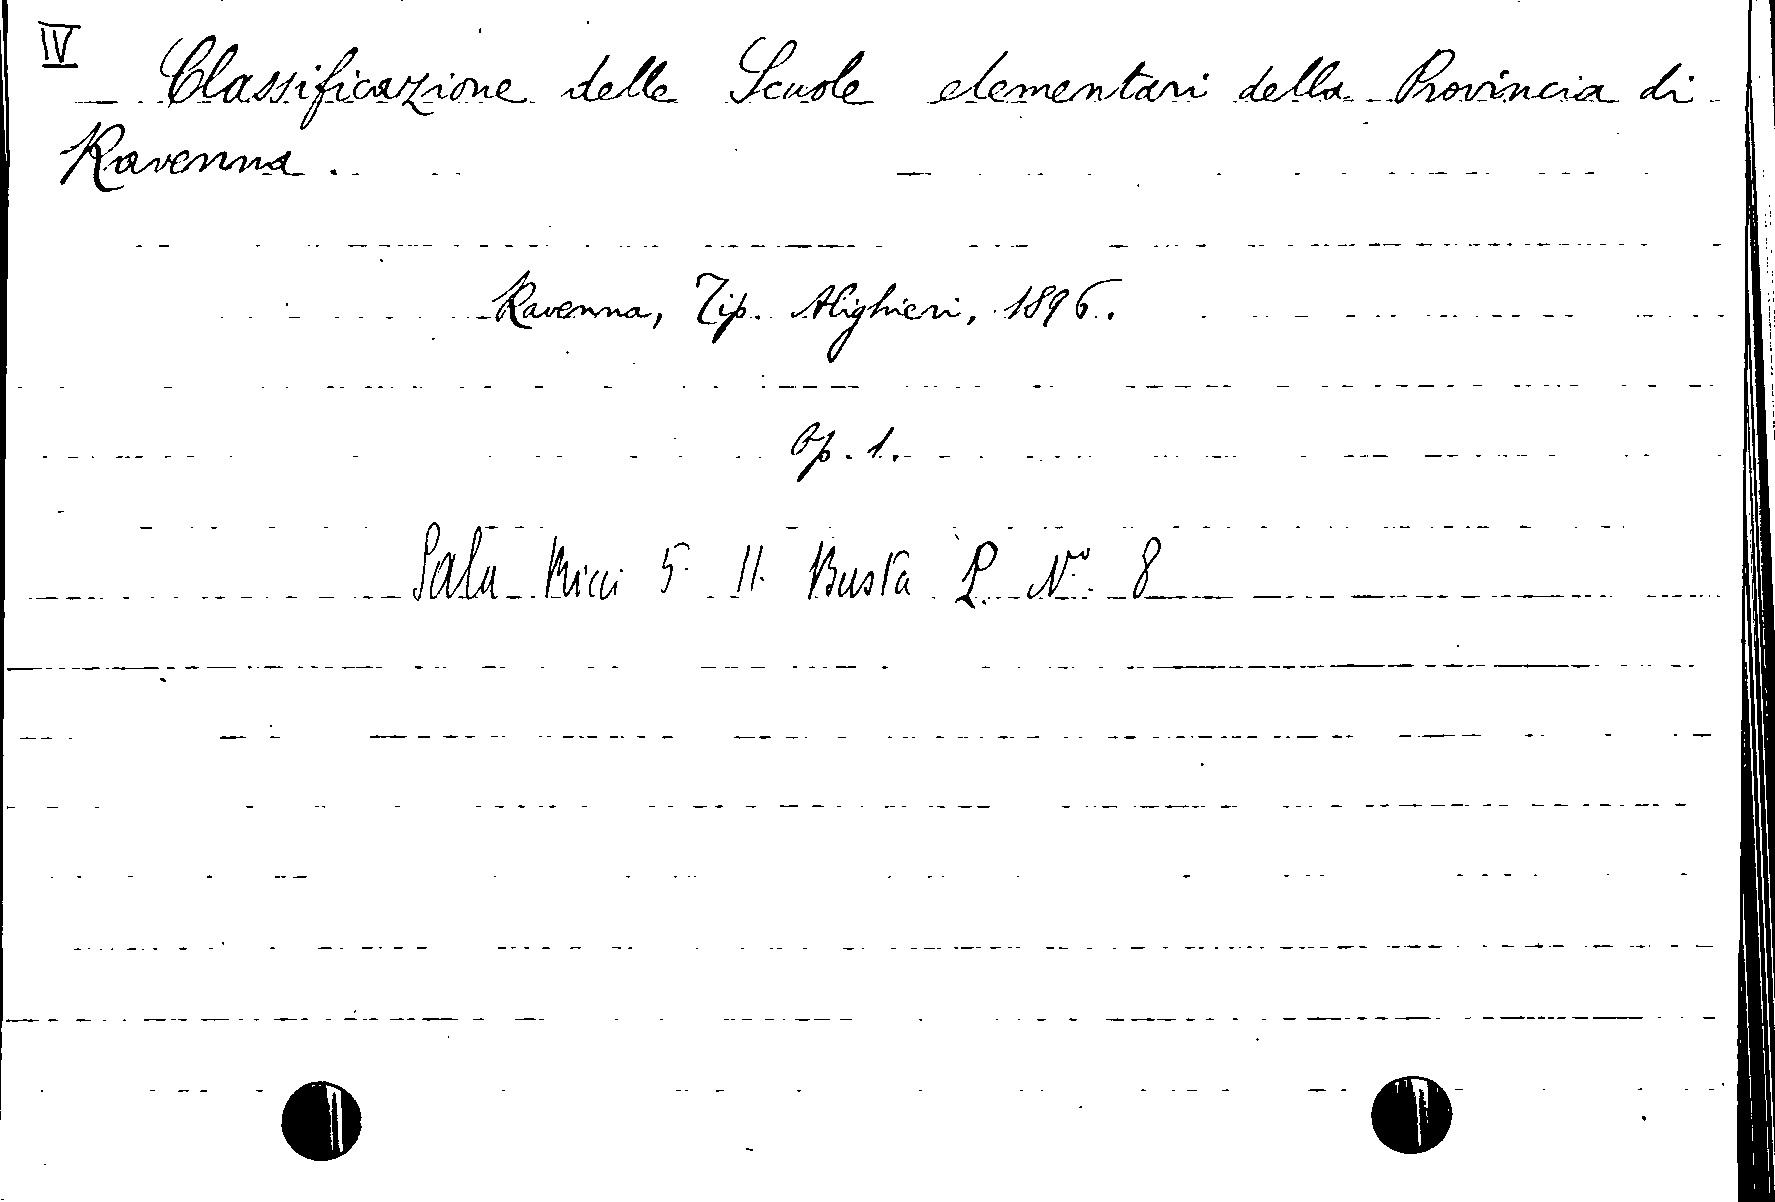 IV
Classificazione delle Scuole elementari della Provincia di
Ravenna.
Ravenna, Tip. Alighieri, 1896.
Op. 1.
Sala Ricci 5. 11. Busta P. No. 8